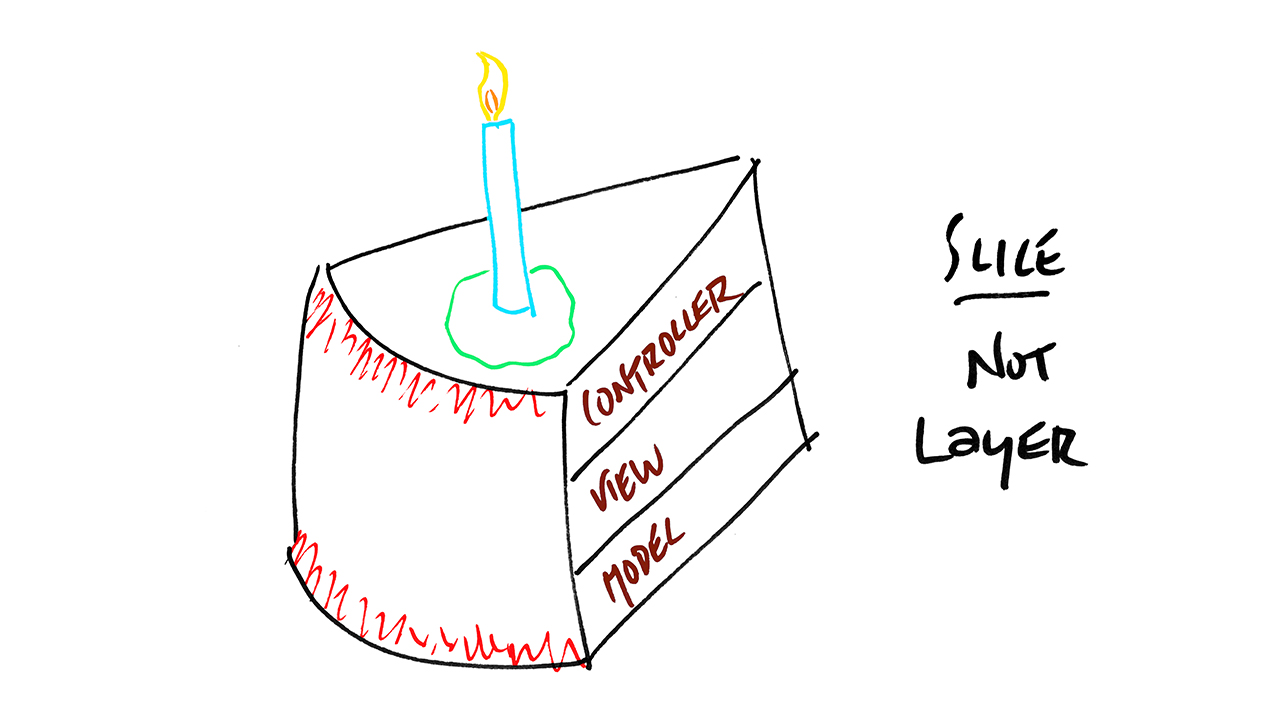 CONTROLLER
VIEW
MODEL
SLICE
NOT
LAYER